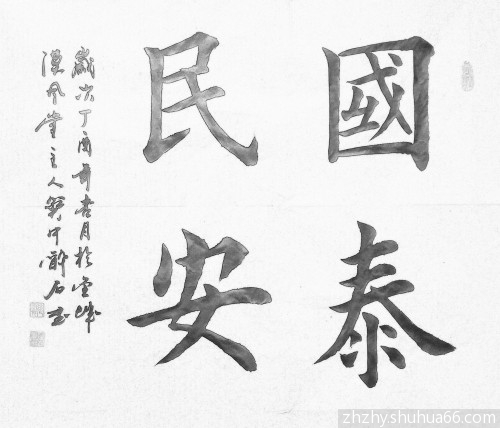 國泰
民安
歲次丁酉年杏月於
漢風堂主人石
zhzhyshuhua66.com